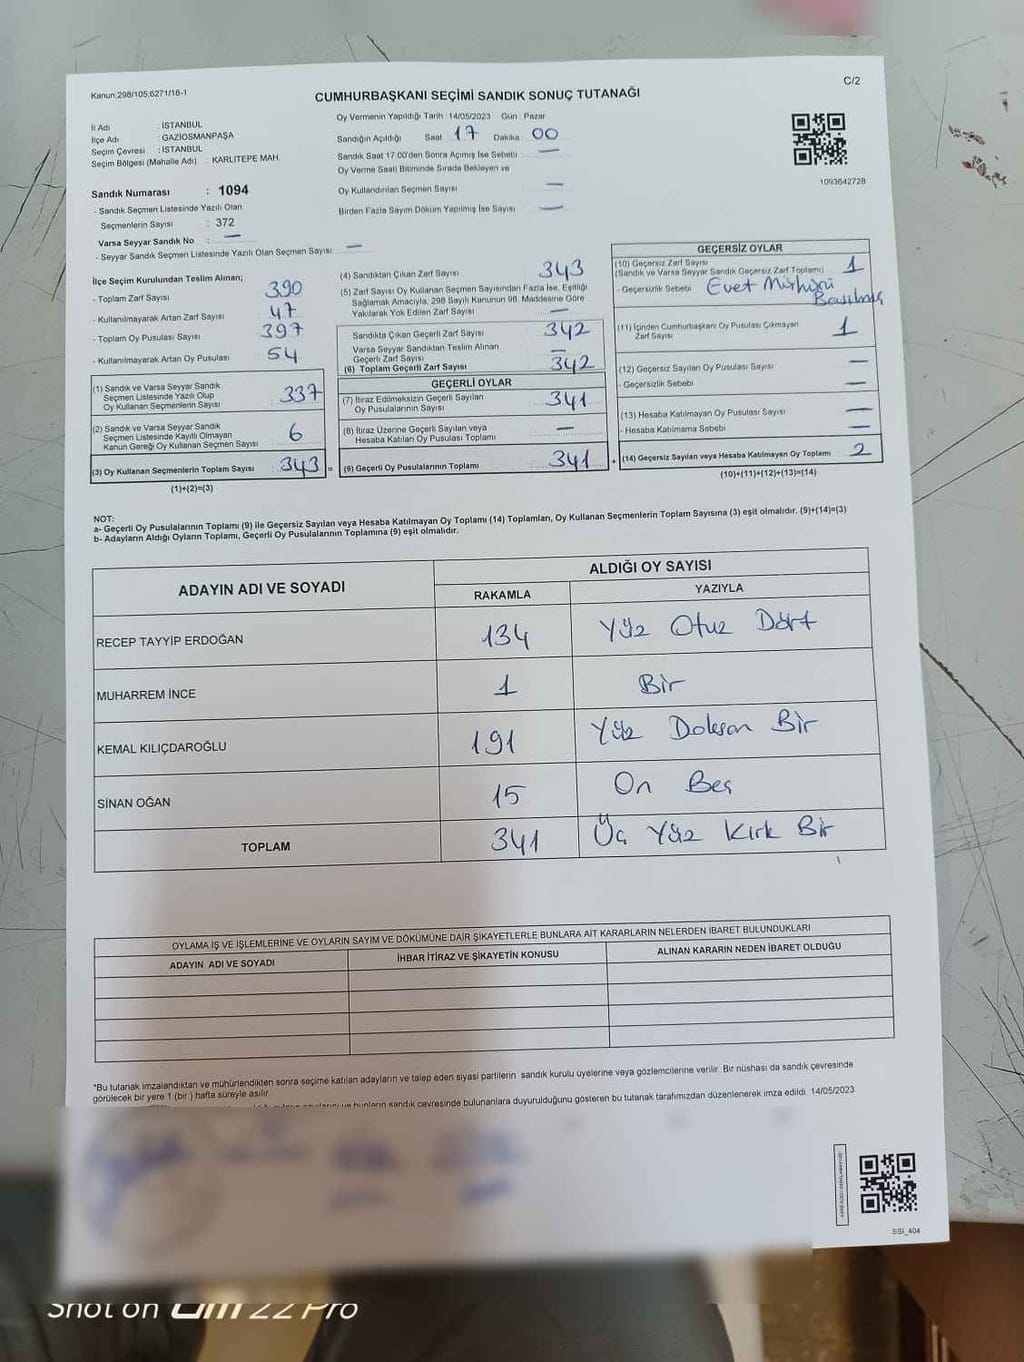 Kanun:298/105,6271/18-1
C/2
CUMHURBAŞKANI SEÇİMİ SANDIK SONUÇ TUTANAĞI
İl Adı : İSTANBUL
İlçe Adı : GAZİOSMANPAŞA
Seçim Çevresi : İSTANBUL
Seçim Bölgesi (Mahalle Adı) : KARLITEPE MAH.
Sandık Numarası : 1094
- Sandık Seçmen Listesinde Yazılı Olan
Seçmenlerin Sayısı : 372
Varsa Seyyar Sandık No : —
- Seyyar Sandık Seçmen Listesinde Yazılı Olan Seçmen Sayısı : —
Oy Vermenin Yapıldığı Tarih 14/05/2023 Gün : Pazar
Sandığın Açıldığı Saat 17 Dakika : 00
Sandık Saat 17.00'den Sonra Açılmış İse Sebebi : —
Oy Verme Saati Bitiminde Sırada Bekleyen ve
Oy Kullandırılan Seçmen Sayısı —
Birden Fazla Sayım Döküm Yapılmış İse Sayısı : —
1093642728
İlçe Seçim Kurulundan Teslim Alınan;
- Toplam Zarf Sayısı : 390
- Kullanılmayarak Artan Zarf Sayısı : 47
- Toplam Oy Pusulası Sayısı : 397
- Kullanılmayarak Artan Oy Pusulası : 54
(1) Sandık ve Varsa Seyyar Sandık
Seçmen Listesinde Yazılı Olup
Oy Kullanan Seçmenlerin Sayısı : 337
(2) Sandık ve Varsa Seyyar Sandık
Seçmen Listesinde Kayıtlı Olmayan
Kanun Gereği Oy Kullanan Seçmen Sayısı : 6
(3) Oy Kullanan Seçmenlerin Toplam Sayısı : 343 =
(1)+(2)=(3)
(4) Sandıktan Çıkan Zarf Sayısı : 343
(5) Zarf Sayısı Oy Kullanan Seçmen Sayısından Fazla İse, Eşitliği
Sağlamak Amacıyla, 298 Sayılı Kanunun 98. Maddesine Göre
Yakılarak Yok Edilen Zarf Sayısı : —
Sandıkta Çıkan Geçerli Zarf Sayısı : 342
Varsa Seyyar Sandıktan Teslim Alınan
Geçerli Zarf Sayısı : —
(6) Toplam Geçerli Zarf Sayısı : 342
GEÇERLİ OYLAR
(7) İtiraz Edilmeksizin Geçerli Sayılan
Oy Pusulalarının Sayısı : 341
(8) İtiraz Üzerine Geçerli Sayılan veya
Hesaba Katılan Oy Pusulası Toplamı : —
(9) Geçerli Oy Pusulalarının Toplamı : 341 +
GEÇERSİZ OYLAR
(10) Geçersiz Zarf Sayısı
(Sandık ve Varsa Seyyar Sandık Geçersiz Zarf Toplamı) : 1
- Geçersizlik Sebebi : Evet Mührü
Basılmış
(11) İçinden Cumhurbaşkanı Oy Pusulası Çıkmayan
Zarf Sayısı : 1
(12) Geçersiz Sayılan Oy Pusulası Sayısı : —
- Geçersizlik Sebebi : —
(13) Hesaba Katılmayan Oy Pusulası Sayısı : —
- Hesaba Katılmama Sebebi : —
(14) Geçersiz Sayılan veya Hesaba Katılmayan Oy Toplamı : 2
(10)+(11)+(12)+(13)=(14)
NOT:
a- Geçerli Oy Pusulalarının Toplamı (9) ile Geçersiz Sayılan veya Hesaba Katılmayan Oy Toplamı (14) Toplamları, Oy Kullanan Seçmenlerin Toplam Sayısına (3) eşit olmalıdır. (9)+(14)=(3)
b- Adayların Aldığı Oyların Toplamı, Geçerli Oy Pusulalarının Toplamına (9) eşit olmalıdır.
ADAYIN ADI VE SOYADI
ALDIĞI OY SAYISI
RAKAMLA YAZIYLA
RECEP TAYYİP ERDOĞAN 134 Yüz Otuz Dört
MUHARREM İNCE 1 Bir
KEMAL KILIÇDAROĞLU 191 Yüz Doksan Bir
SİNAN OĞAN 15 On Beş
TOPLAM 341 Üç Yüz Kırk Bir
OYLAMA İŞ VE İŞLEMLERİNE VE OYLARIN SAYIM VE DÖKÜMÜNE DAİR ŞİKAYETLERLE BUNLARA AİT KARARLARIN NELERDEN İBARET BULUNDUKLARI
ADAYIN ADI VE SOYADI İHBAR İTİRAZ VE ŞİKAYETİN KONUSU ALINAN KARARIN NEDEN İBARET OLDUĞU
*Bu tutanak imzalandıktan ve mühürlendikten sonra seçime katılan adayların ve talep eden siyasi partilerin sandık kurulu üyelerine veya gözlemcilerine verilir. Bir nüshası da sandık çevresinde
görülecek bir yere 1 (bir ) hafta süreyle asılır.
ve bunların sandık çevresinde bulunanlara duyurulduğunu gösteren bu tutanak tarafımızdan düzenlenerek imza edildi. 14/05/2023
SSI_404
Shot on 22 Pro